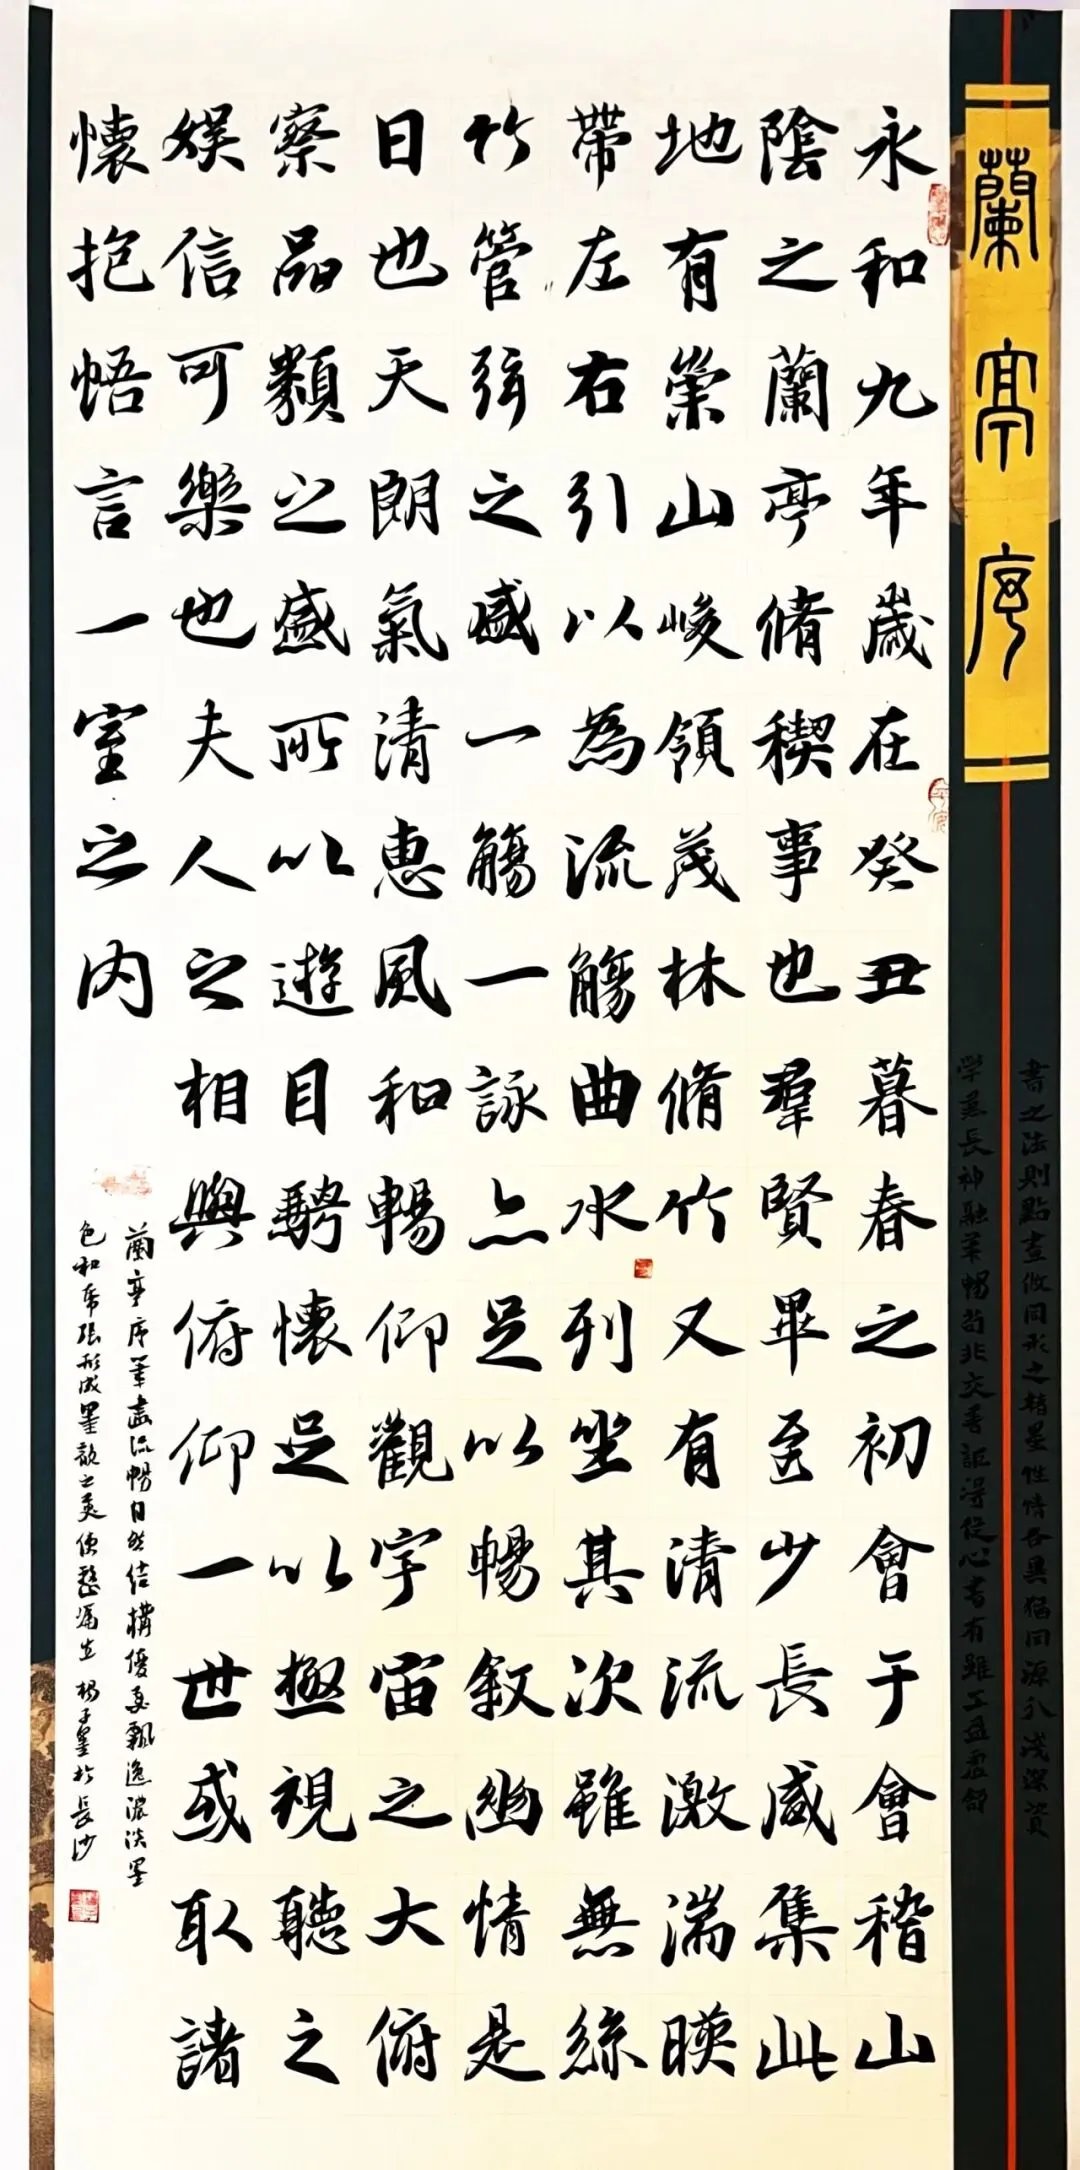 蘭亭序
書之法則點畫攸同形之楷墨性情各異猶同源分淺深資
学長神融筆暢苟非交善詎得從心書有雖工盈虛舒
永和九年歲在癸丑暮春之初會于會稽山
陰之蘭亭脩稧事也羣賢畢至少長咸集此
地有崇山峻領茂林脩竹又有清流激湍暎
帶左右引以為流觴曲水列坐其次雖無絲
竹管弦之盛一觴一詠亦足以暢敘幽情是
日也天朗氣清惠風和暢仰觀宇宙之大俯
察品類之盛所以遊目騁懷足以極視聽之
娛信可樂也夫人之相與俯仰一世或取諸
懷抱悟言一室之內
蘭亭序筆畫流暢自然結構優美飄逸濃淡墨
色和布張形成墨韻之美使整篇生 於長沙